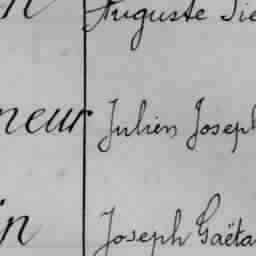 Auguste
neur Julien Joseph
in Joseph Gaëta